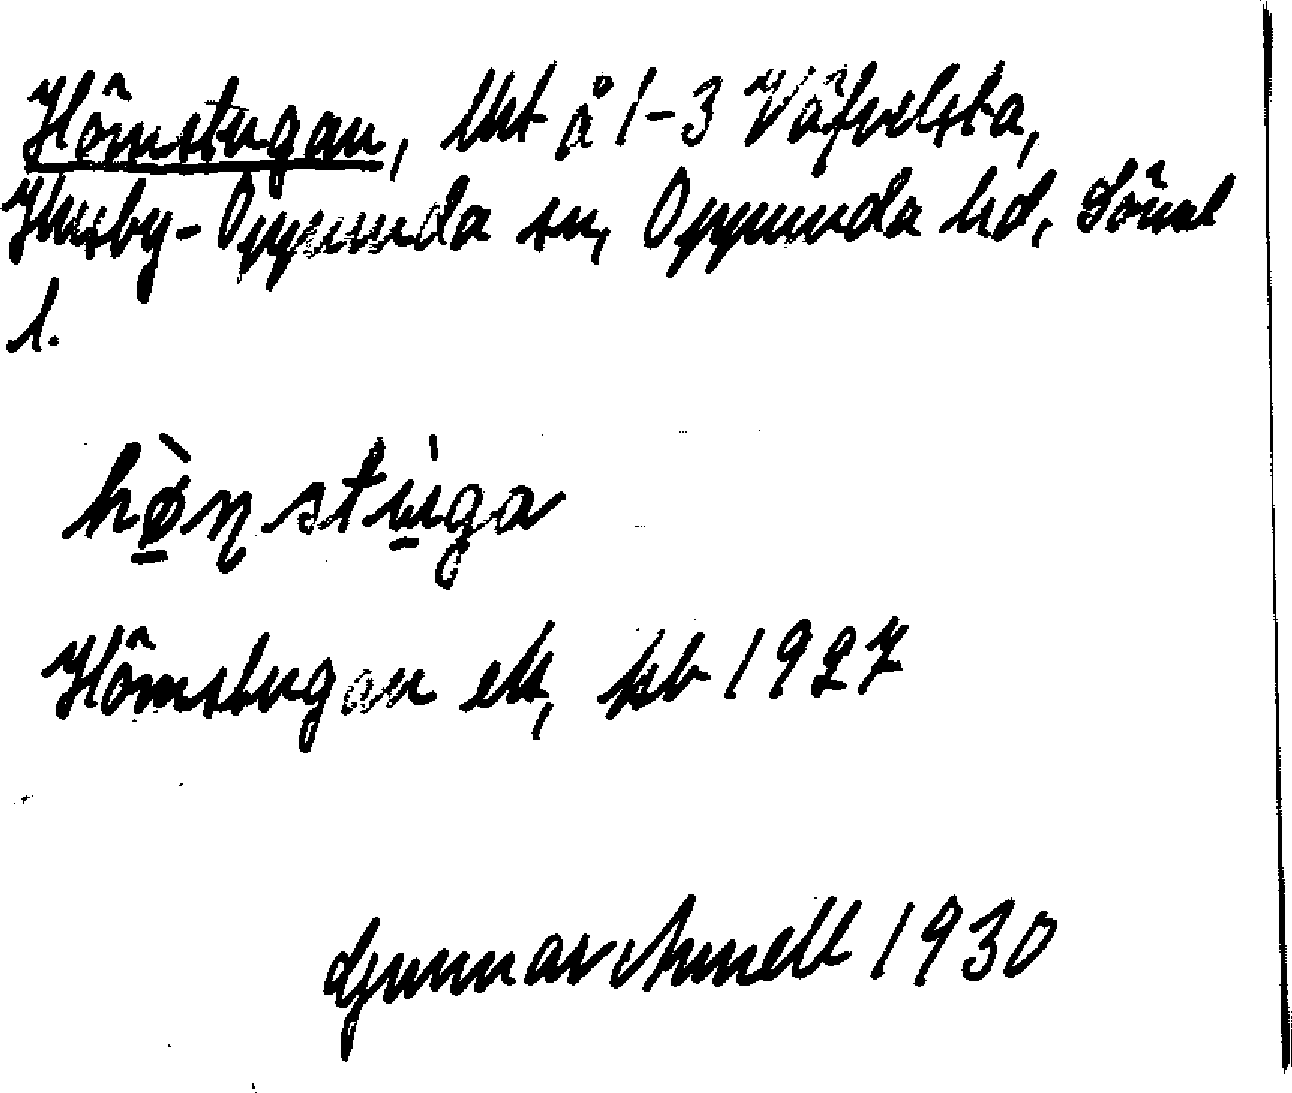 Hörnstugan, lht å 1-3 Väfvelsta,
Husby-Oppunda sn, Oppunda hd, Sörml
l.
hø̀ṇstu̇ga
Hörnstugan ell, kb 1927
Gunnar Arnell 1930